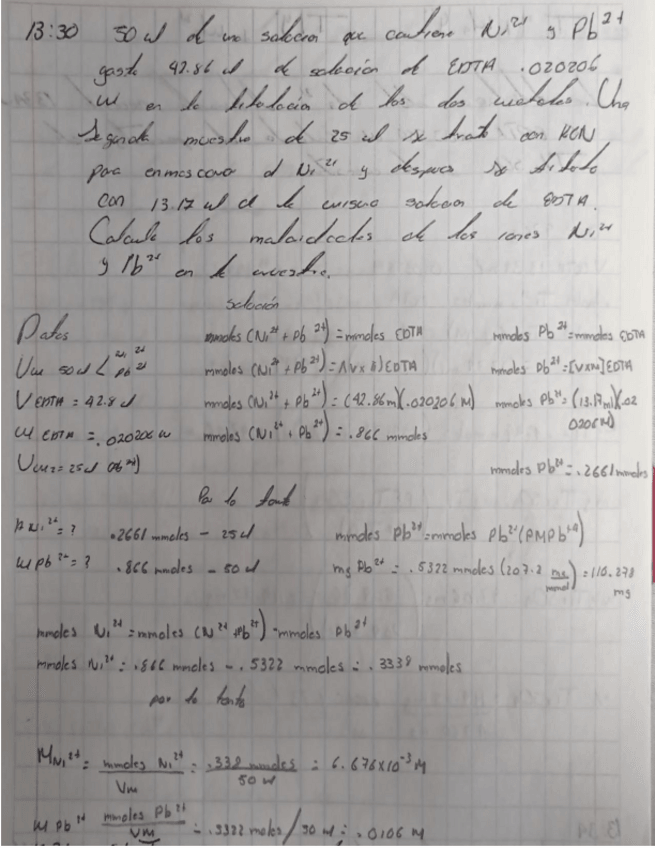 13:30 50 ml de una solución que contiene Ni²⁺ y Pb²⁺
gasta 42.86 ml de solución de EDTA .020206
M en la titulación de los dos metales. Una
segunda muestra de 25 ml se trata con KCN
para enmascarar el Ni²⁺ y después se titula
con 13.17 ml de la misma solución de EDTA.
Calcule las molaridades de los iones Ni²⁺
y Pb²⁺ en la muestra.
solución
Datos
Vm 50 ml < Ni²⁺ Pb²⁺
V EDTA = 42.8 ml
M EDTA = .020206 M
Vm2 = 25 ml (Pb²⁺)
M Ni²⁺ = ?
M Pb²⁺ = ?
mmoles (Ni²⁺ + Pb²⁺) = mmoles EDTA
mmoles (Ni²⁺ + Pb²⁺) = (V x M) EDTA
mmoles (Ni²⁺ + Pb²⁺) = (42.86 ml)(.020206 M)
mmoles (Ni²⁺ + Pb²⁺) = .866 mmoles
mmoles Pb²⁺ = mmoles EDTA
mmoles Pb²⁺ = [VxM] EDTA
mmoles Pb²⁺ = (13.17 ml)(.02
0206 M)
mmoles Pb²⁺ = .2661 mmoles
Por lo tanto
.2661 mmoles - 25 ml
.866 mmoles - 50 ml
mmoles Pb²⁺ = mmoles Pb²⁺ (PM Pb⁺²)
mg Pb²⁺ = .5322 mmoles (207.2 mg/mmol) = 110.278
mg
mmoles Ni²⁺ = mmoles (Ni²⁺ + Pb²⁺) - mmoles Pb²⁺
mmoles Ni²⁺ = .866 mmoles - .5322 mmoles = .3338 mmoles
por lo tanto
M Ni²⁺ = mmoles Ni²⁺ / Vm = .338 mmoles / 50 ml = 6.676x10⁻³ M
M Pb²⁺ mmoles Pb²⁺ / Vm = .5322 moles / 50 ml = .0106 M